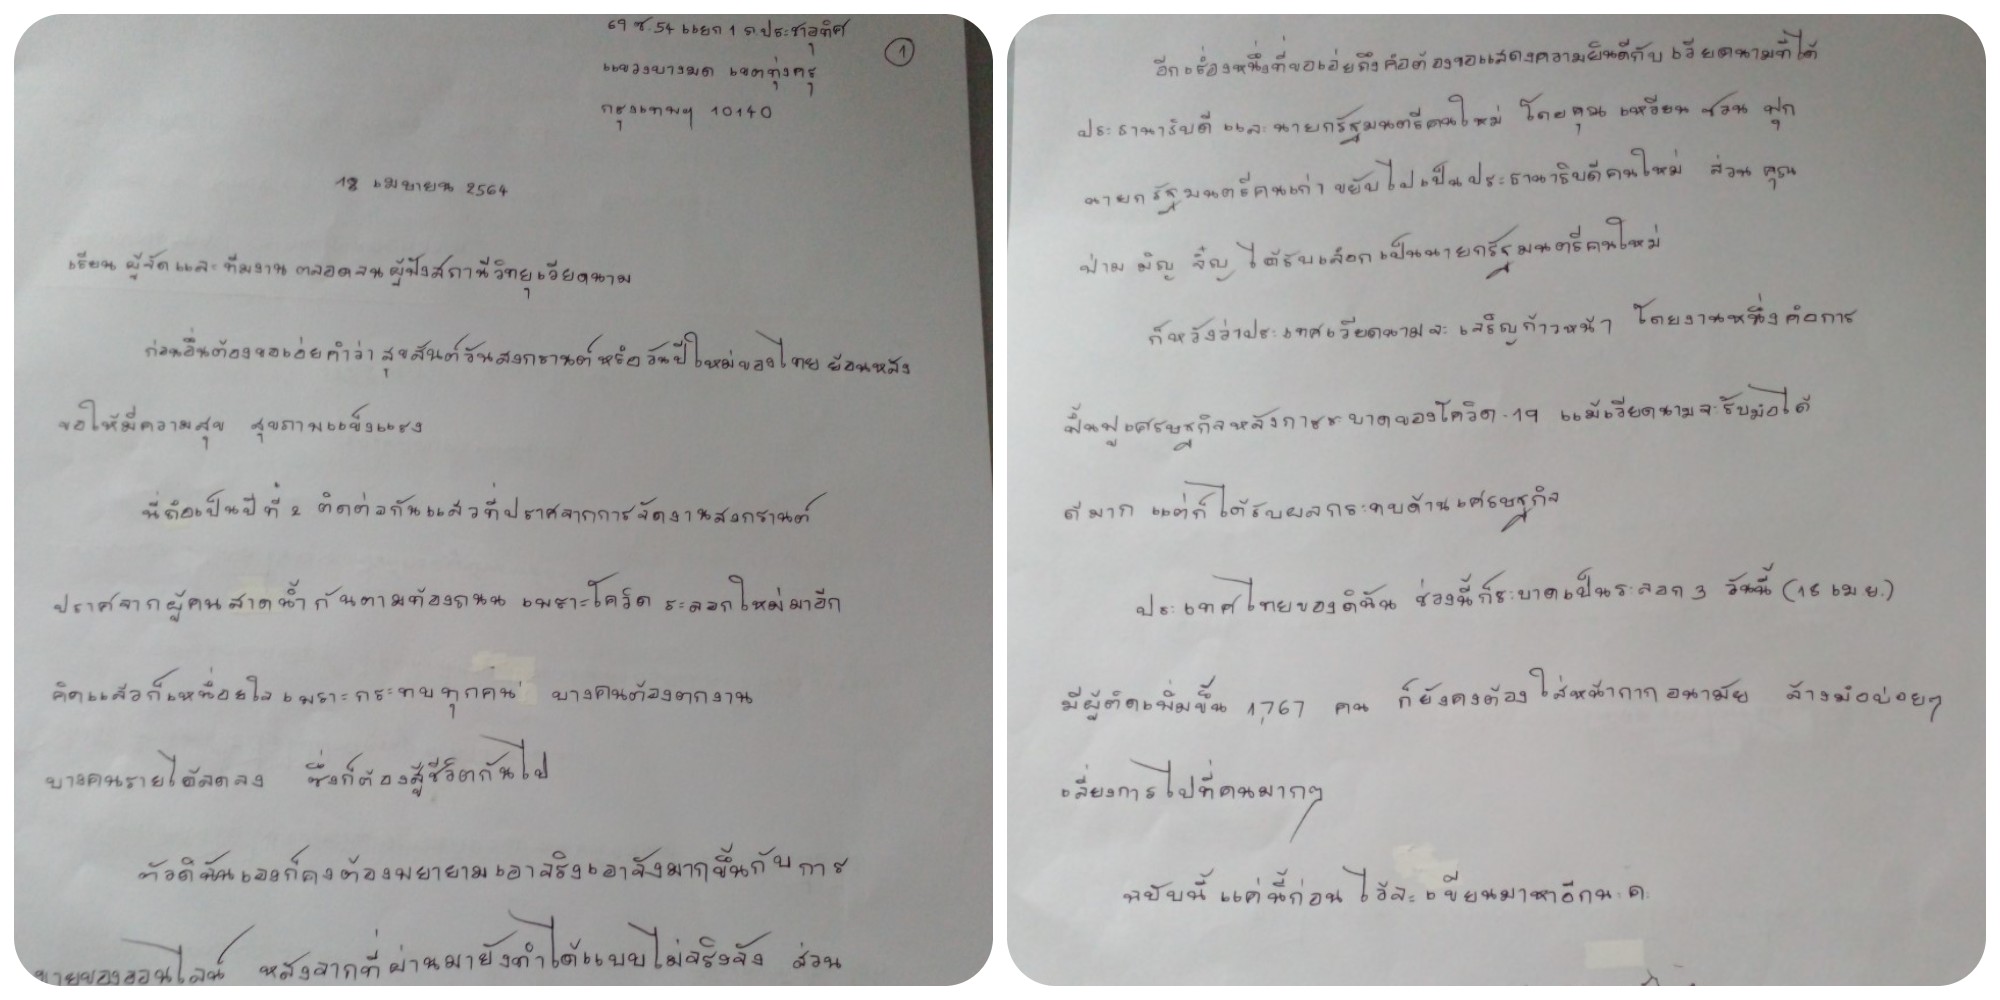 69 ซ.54 แยก 1 ถ.ประชาอุทิศ
①
แขวงบางมด เขตทุ่งครุ
กรุงเทพฯ 10140
18 เมษายน 2564
เรียน ผู้จัดและทีมงาน ตลอดจนผู้ฟังสถานีวิทยุเวียดนาม
ก่อนอื่นต้องขอเอ่ยคำว่า สุขสันต์วันสงกรานต์หรือวันปีใหม่ของไทย ย้อนหลัง
ขอให้มีความสุข สุขภาพแข็งแรง
นี่ถือเป็นปีที่ 2 ติดต่อกันแล้วที่ปราศจากการจัดงานสงกรานต์
ปราศจากผู้คนสาดน้ำกันตามท้องถนน เพราะโควิด ระลอกใหม่มาอีก
คิดแล้วก็เหนื่อยใจ เพราะกระทบทุกคน บางคนต้องตกงาน
บางคนรายได้ลดลง ซึ่งก็ต้องสู้ชีวิตกันไป
ตัวดิฉันเองก็คงต้องพยายามเอาจริงเอาจังมากขึ้นกับการ
ขายของออนไลน์ หลังจากที่ผ่านมายังทำได้แบบไม่จริงจัง ส่วน
อีกเรื่องหนึ่งที่ขอเอ่ยถึงคือต้องขอแสดงความยินดีกับ เวียดนามที่ได้
ประธานาธิบดี และนายกรัฐมนตรีคนใหม่ โดยคุณ เหงียน ซวน ฟุก
นายกรัฐมนตรีคนเก่า ขยับไปเป็นประธานาธิบดีคนใหม่ ส่วน คุณ
ฟาม มิญ จิ๋ญ ได้รับเลือกเป็นนายกรัฐมนตรีคนใหม่
ก็หวังว่าประเทศเวียดนามจะ เจริญก้าวหน้า โดยงานหนึ่งคือการ
ฟื้นฟูเศรษฐกิจหลังการระบาดของโควิด-19 แม้เวียดนามจะรับมือได้
ดีมาก แต่ก็ได้รับผลกระทบด้านเศรษฐกิจ
ประเทศไทยของดิฉัน ช่วงนี้ก็ระบาดเป็นระลอก 3 วันนี้ (18 เม.ย.)
มีผู้ติดเพิ่มขึ้น 1,767 คน ก็ยังคงต้องใส่หน้ากากอนามัย ล้างมือบ่อยๆ
เลี่ยงการไปที่คนมากๆ
ฉบับนี้ แค่นี้ก่อน ไว้จะเขียนมาหาอีกนะคะ